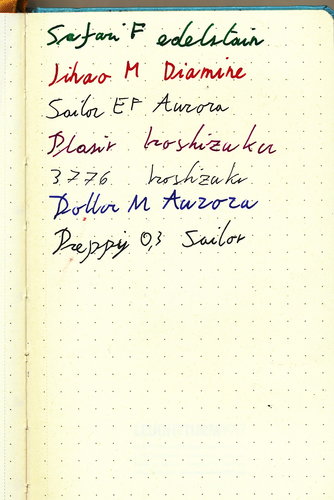 Safari F edelstain
Jihao M Diamine
Sailor EF Aurora
Plasir koshizuku
3776 koshizuku
Dollar M Aurora
Preppy 0,3 Sailor